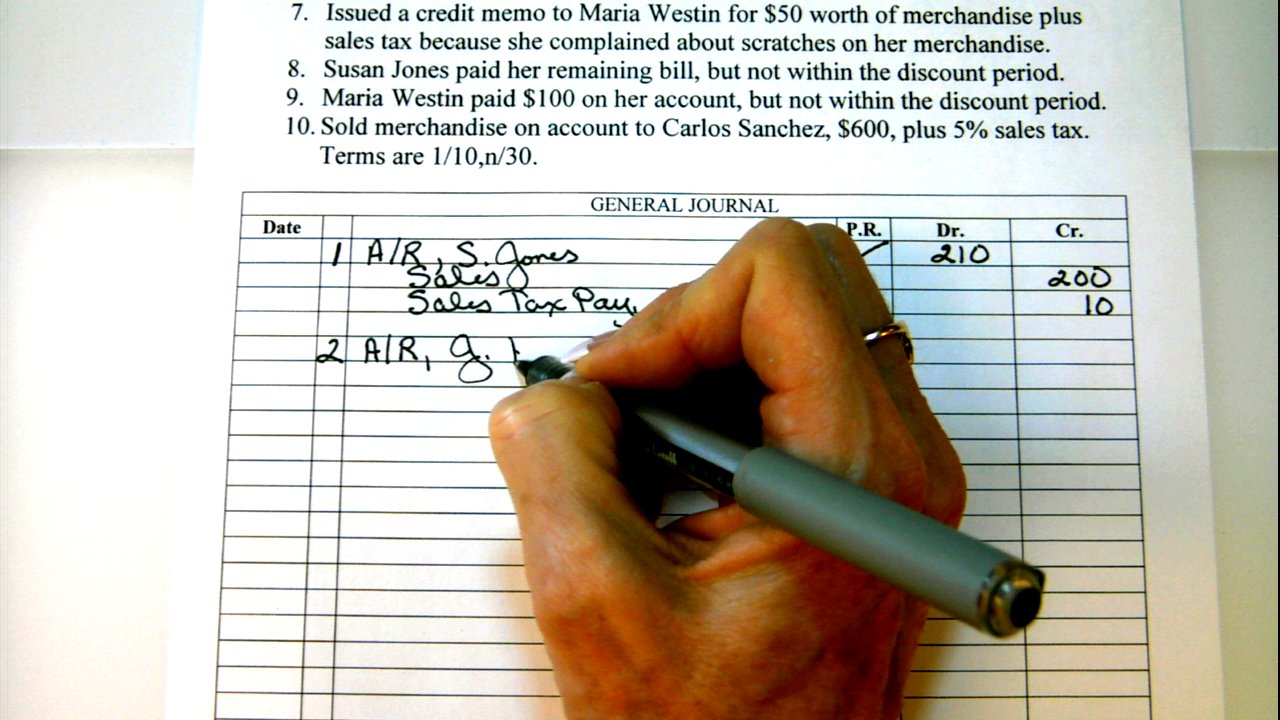 7. Issued a credit memo to Maria Westin for $50 worth of merchandise plus
sales tax because she complained about scratches on her merchandise.
8. Susan Jones paid her remaining bill, but not within the discount period.
9. Maria Westin paid $100 on her account, but not within the discount period.
10. Sold merchandise on account to Carlos Sanchez, $600, plus 5% sales tax.
Terms are 1/10,n/30.
GENERAL JOURNAL
Date P.R. Dr. Cr.
1 A/R, S. Jones 210
Sales 200
Sales Tax Pay. 10
2 A/R, J.